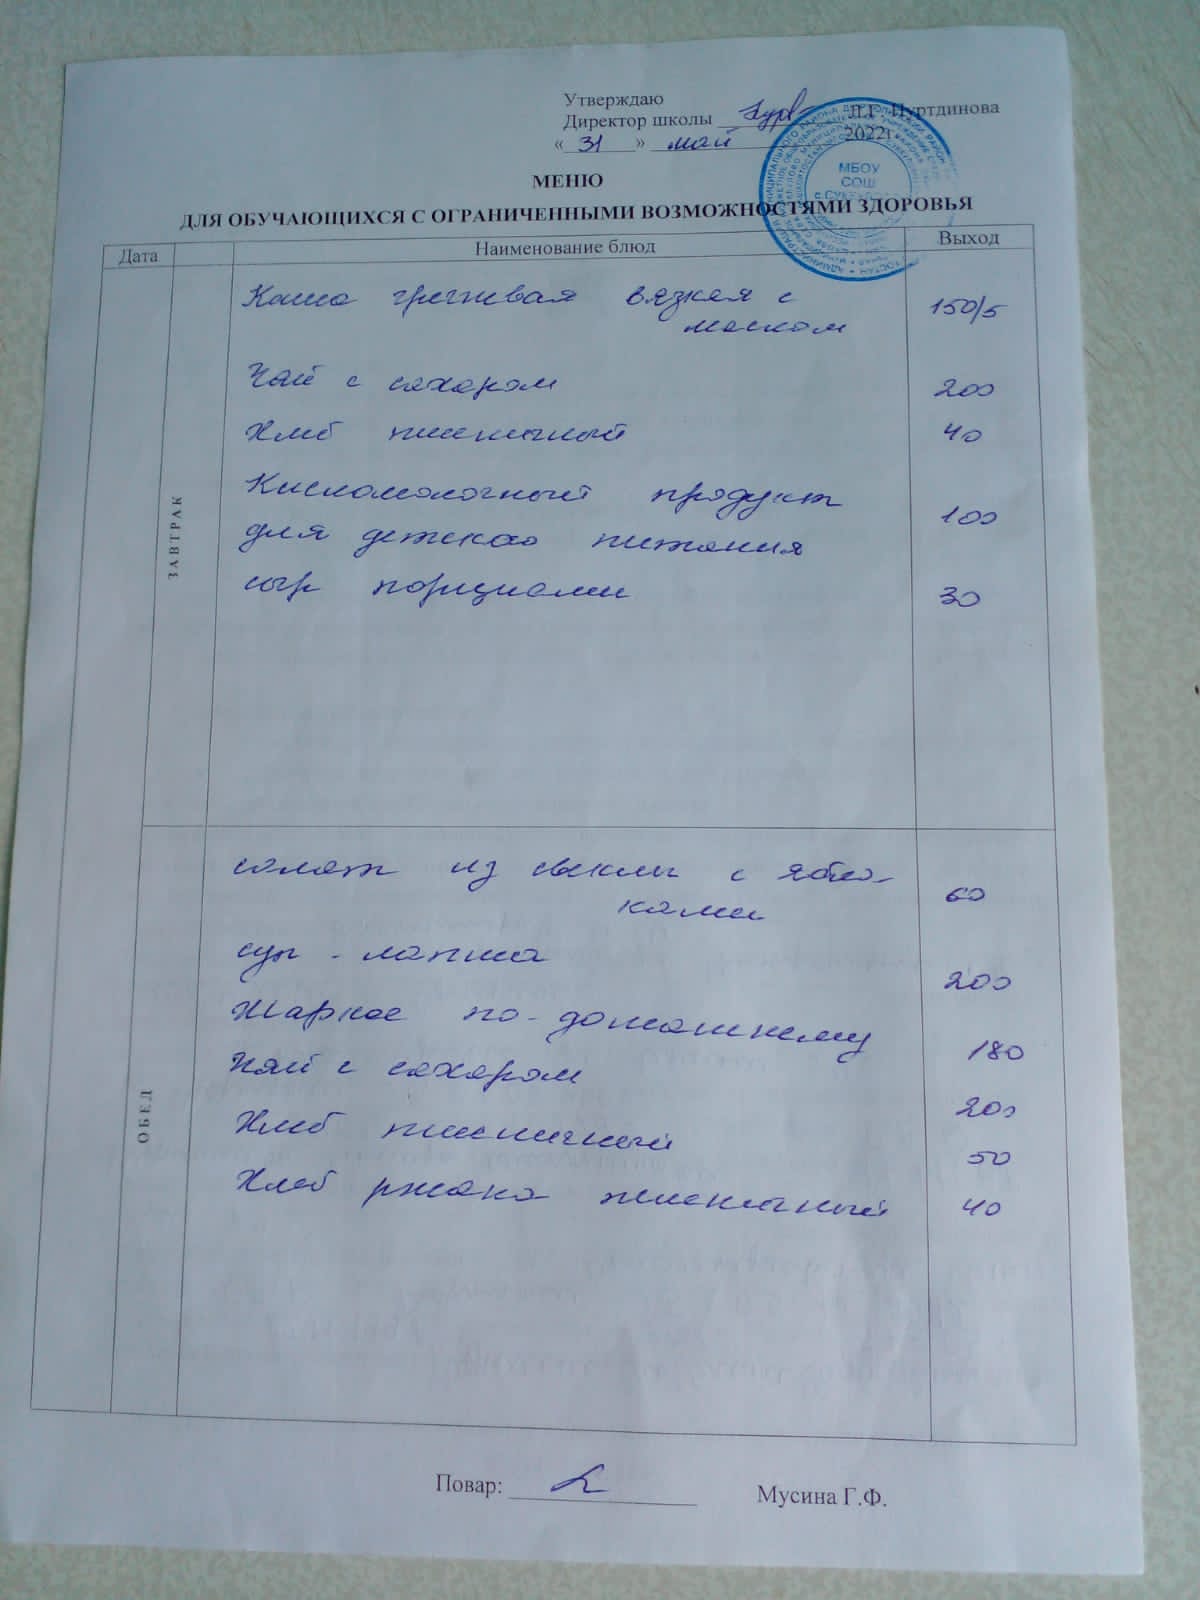 Утверждаю
Директор школы Л.Г. Нуртдинова
« 31 » май 2022г.
МБОУ
СОШ
МЕНЮ
ДЛЯ ОБУЧАЮЩИХСЯ С ОГРАНИЧЕННЫМИ ВОЗМОЖНОСТЯМИ ЗДОРОВЬЯ
Дата Наименование блюд Выход
ЗАВТРАК
Каша гречневая вязкая с
маслом 150/5
Чай с сахаром 200
Хлеб пшеничный 40
Кисломолочный продукт
для детского питания 100
сыр порциями 30
ОБЕД
салат из свеклы с ябло-
ками 60
суп - лапша 200
Жаркое по-домашнему 180
Чай с сахаром 200
Хлеб пшеничный 50
Хлеб ржано пшеничный 40
Повар: Мусина Г.Ф.